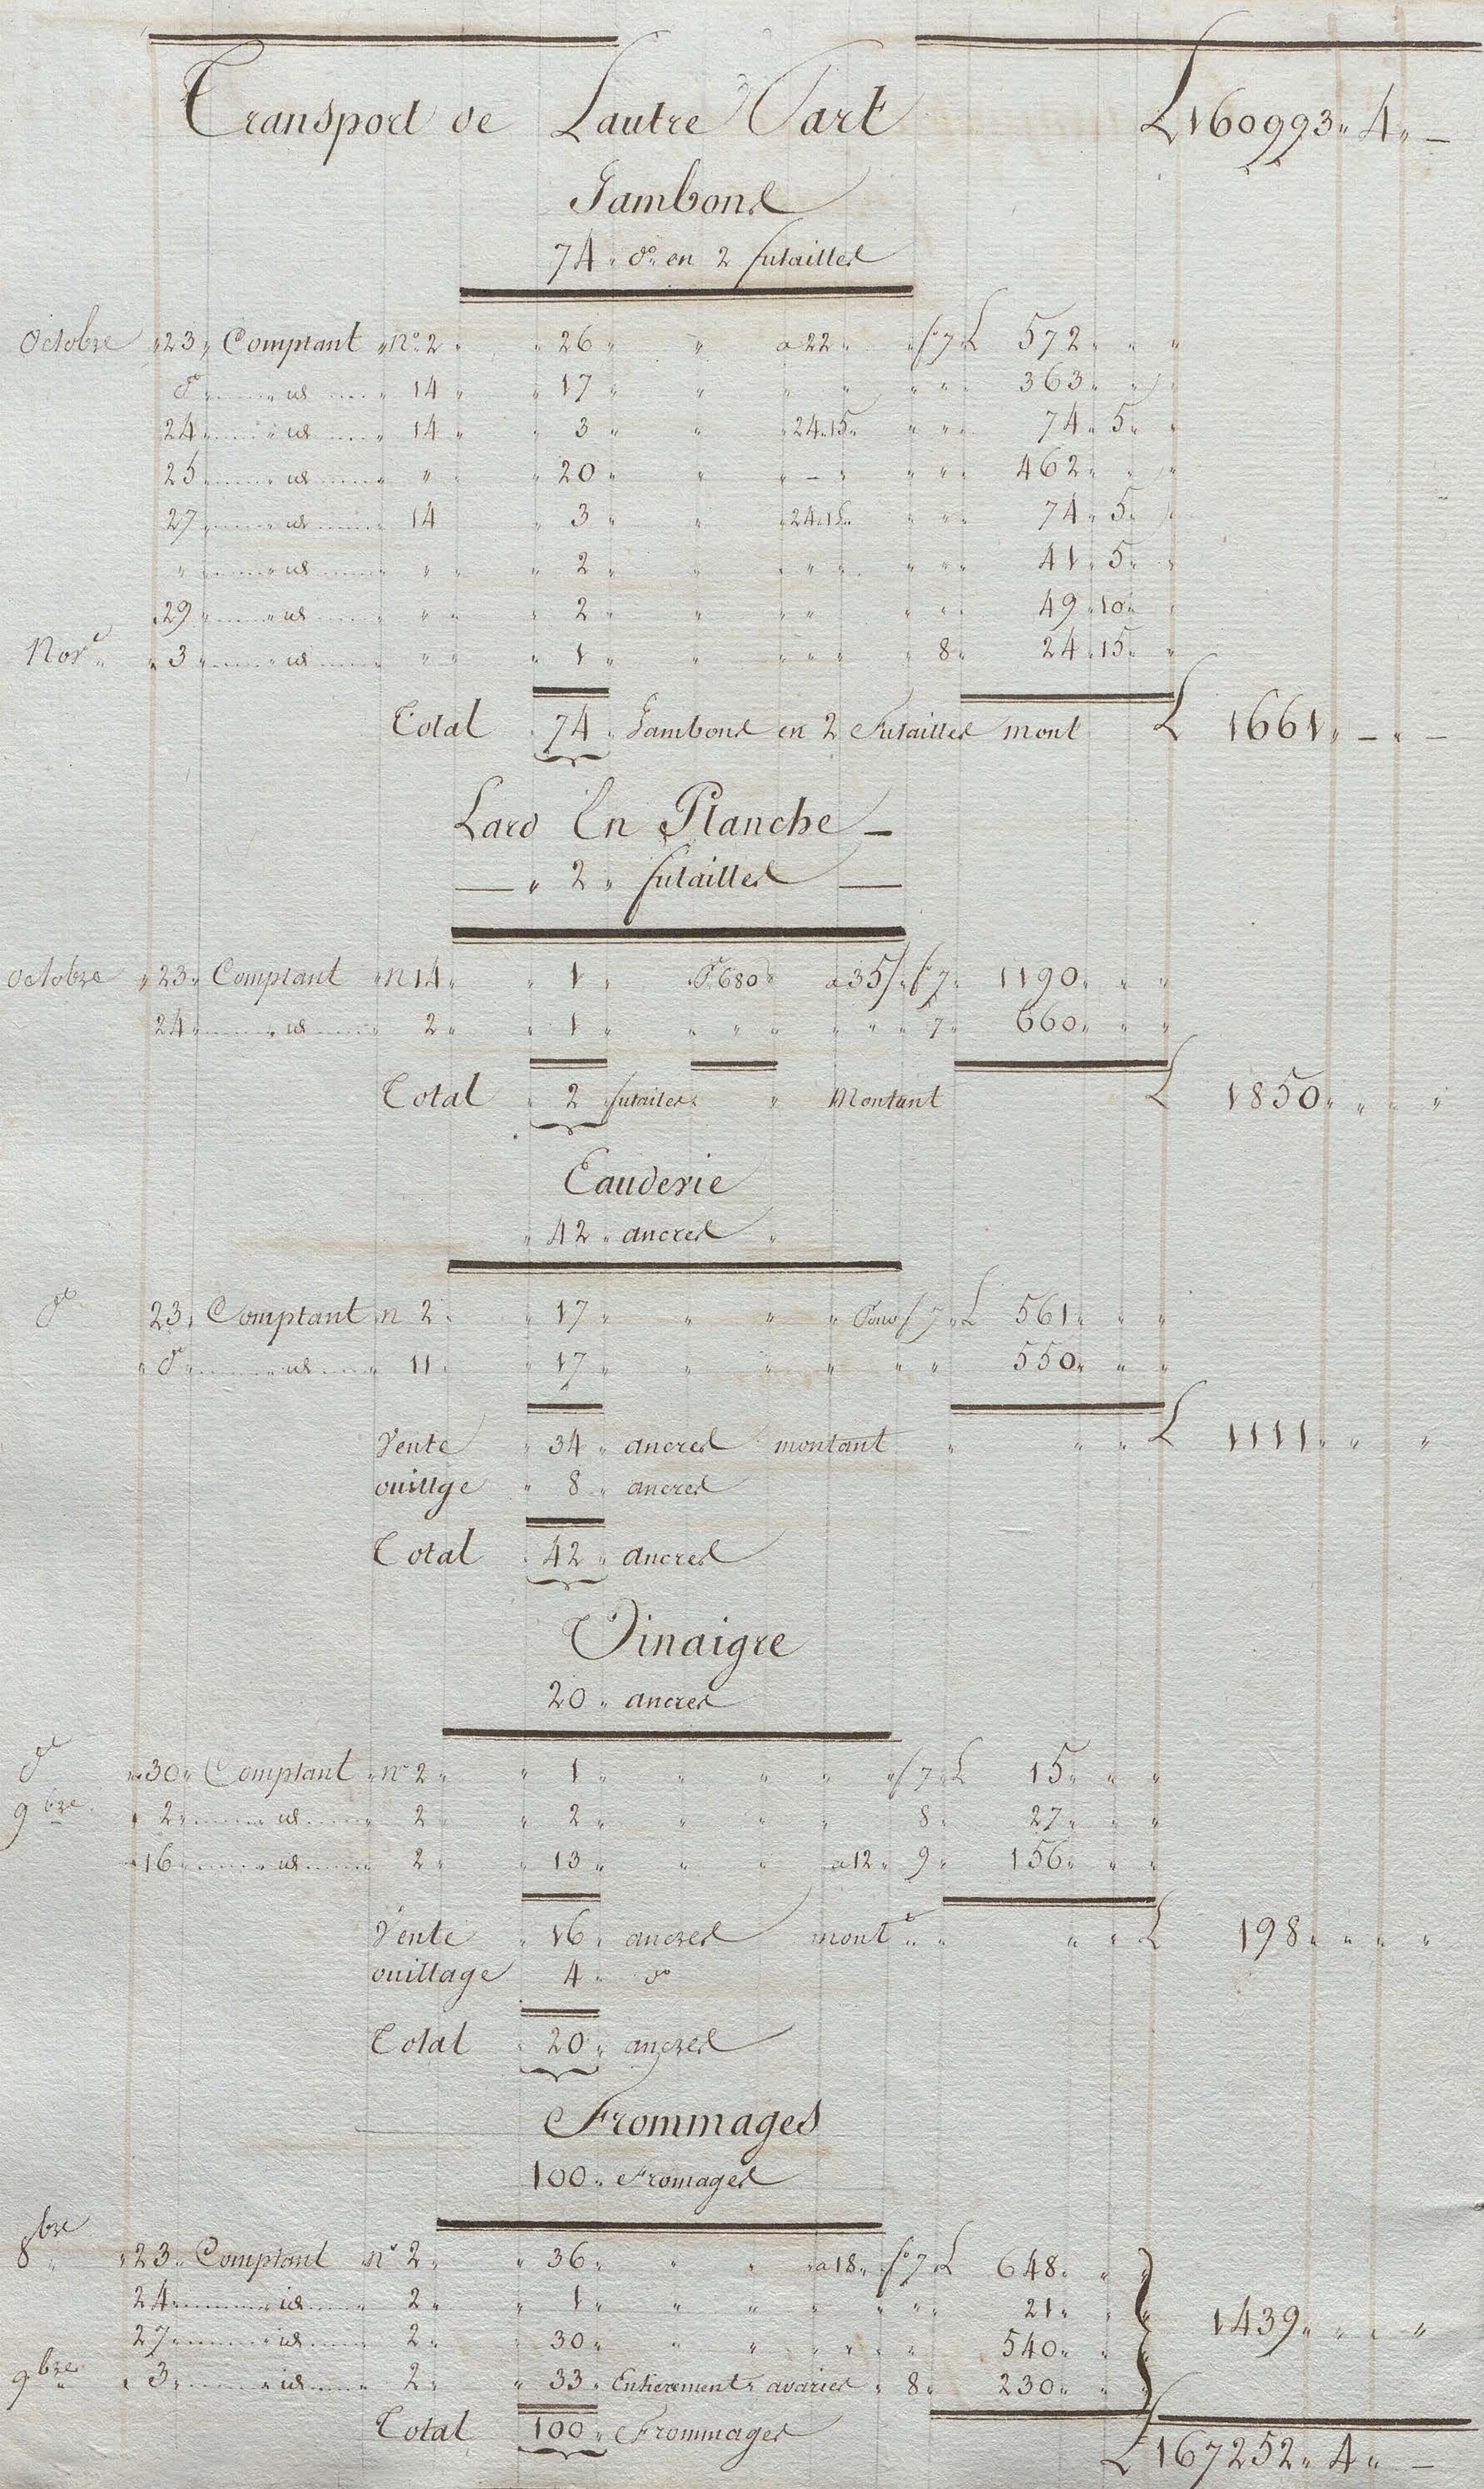 Transport de Lautre Part L 160993 " 4 " —
Jambons
74 " do en 2 futailles
Octobre " 23 " Comptant " No 2 " " 26 " " a 22 " " fo 7 L 572 " " "
do " id " 14 " " 17 " " " " " " " 363 " " "
24 " id " 14 " " 3 " " " 24 " 15 " " " " 74 " 5 " "
25 " id " " " 20 " " " — " " " " 462 " " "
27 " id " 14 " 3 " " " 24 " 15 " " " " 74 " 5 " "
" " id " " " " 2 " " " " " " " " 41 " 5 " "
29 " id " " " " 2 " " " " " " " 49 " 10 " "
Nove " " 3 " id " " " " 1 " " " " " " 8 " 24 " 15 " "
Total " 74 " Jambons en 2 Futailles mont L 1661 " — " —
Lard En Planche —
— " 2 " futailles —
octobre " 23 " Comptant " n 14 " " 1 " " P. 680 " a 35/ " fo 7 " 1190 " " "
24 " id " 2 " " 1 " " " " " " " 7 " 660 " " "
Total " 2 " futailes " " Montant L 1850 " " " "
Eaudevie
" 42 " ancres "
do 23 " Comptant n 2 " " 17 " " " " Pour f 7 " L 561 " " "
" do " id " 11 " " 17 " " " " " " 550 " " "
Vente " 34 " ancres montant " " " L 1111 " " "
ouillge " 8 " ancres
Total " 42 " ancres
Vinaigre
20 " ancres
do " 30 " Comptant " no 2 " " 1 " " " " " f 7 " L 15 " " "
9bre " " 2 " id " 2 " " 2 " " " " 8 " 27 " " "
" 16 " id " 2 " " 13 " " " a 12 " 9 " 156 " " "
Vente " 16 " ancres mont " " " " L 198 " " " "
ouillage 4 " do
Total " 20 " ancres
Frommages
100 " Fromages
8bre " " 23 " Comptant " no 2 " " 36 " " " " a 18 " fo 7 " L 648 " " "
24 " id " 2 " " 1 " " " " " " " 21 " " "
27 " id " 2 " " 30 " " " " " " " 540 " " " 1439 " " " "
9bre " " 3 " id " 2 " " 33 " Entierement " avaries " 8 " 230 " " "
Total 100 " Frommages
L 167252 " 4 " —